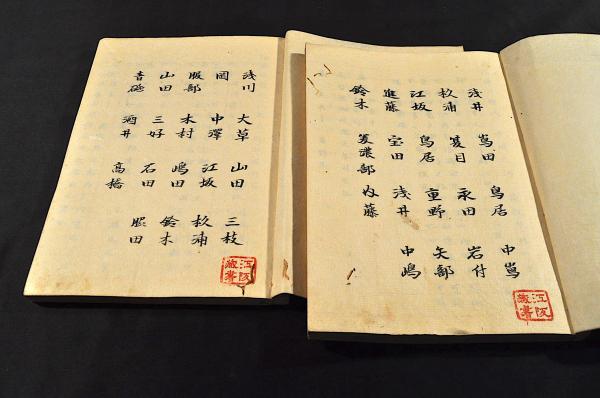 浅井 嶌田 鳥居 中嶌
杦浦 夏目 永田 岩付
江坂 鳥居 重野 矢部
進藤 宝田 浅井 中嶋
鈴木 美濃部 内藤
江阪蔵書
浅川 大草 山田 三枝
岡 中澤 江坂 杦浦
服部 木村 嶋田 鈴木
山田 三好 石田
青砥 酒井 高橋
江阪蔵書